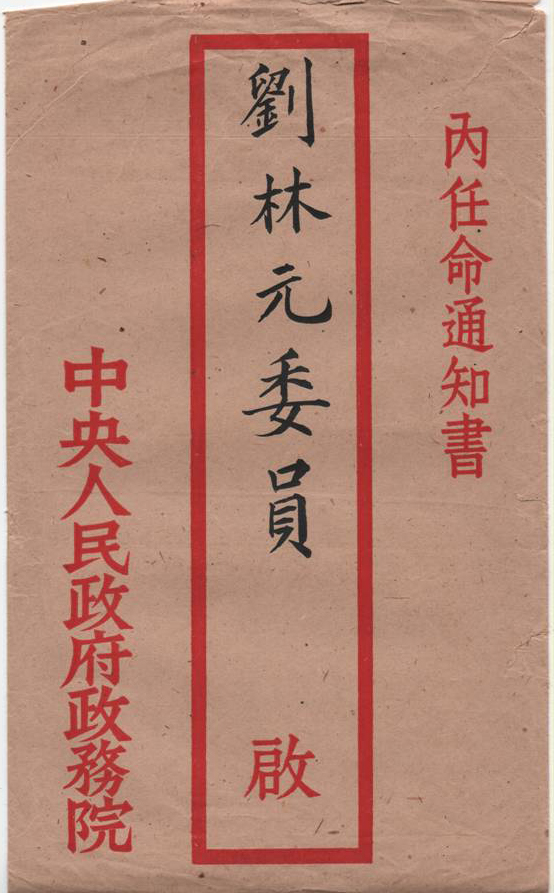 內任命通知書
劉林元委員 啟
中央人民政府政務院